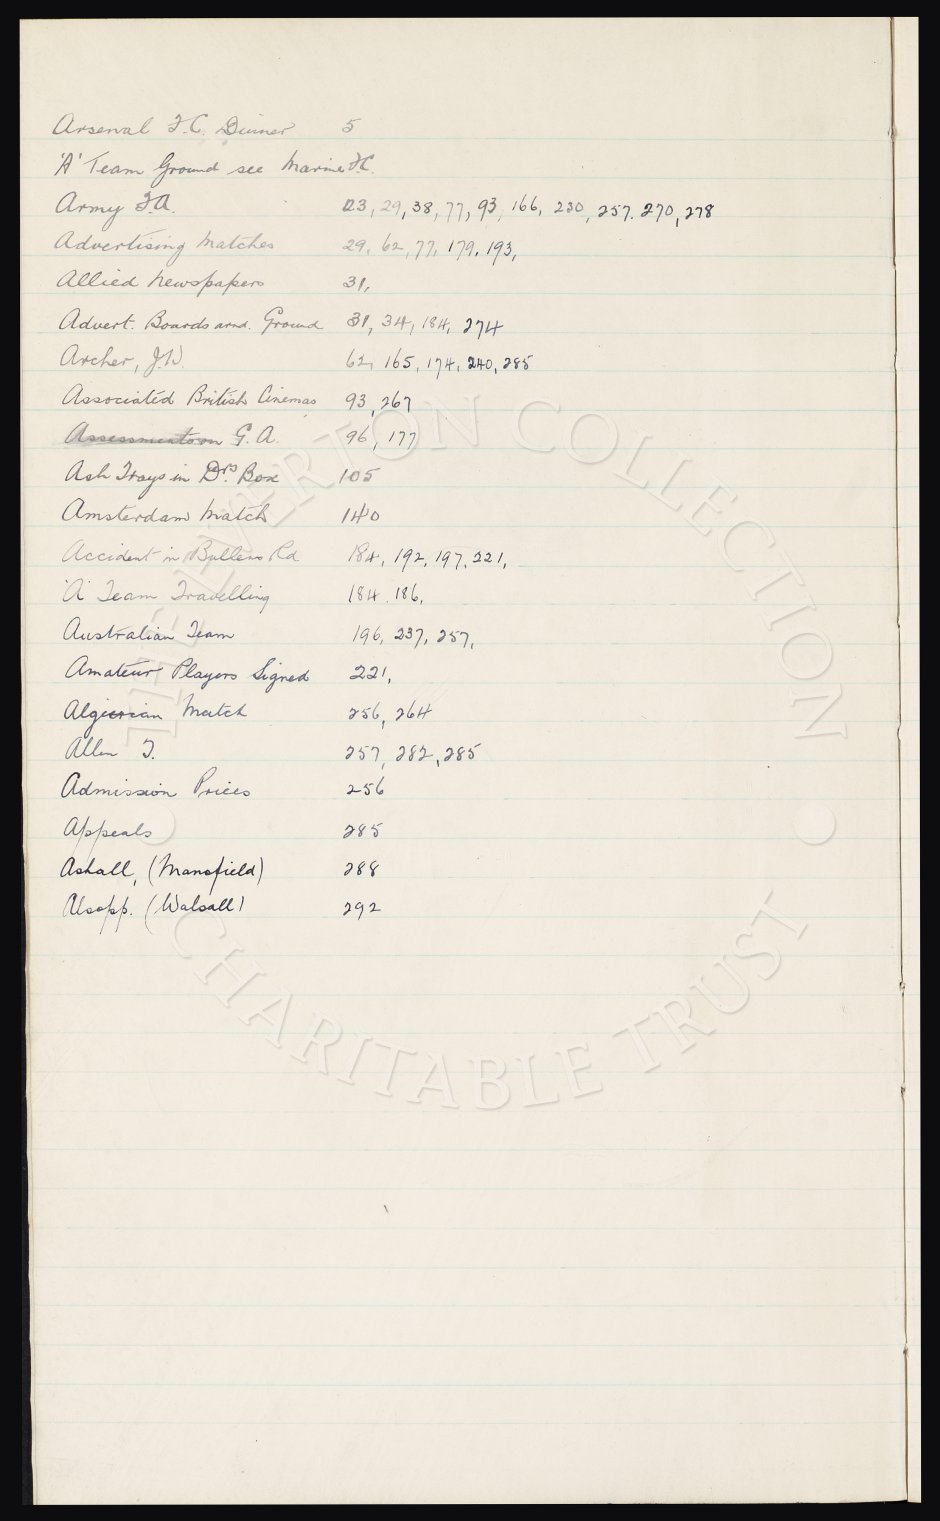 Arsenal F.C. Dinner 5
'A' Team Ground see Marine F.C.
Army F.A. 23, 29, 38, 77, 93, 166, 230, 257. 270, 278
Advertising Matches 29, 62, 77, 179, 193,
Allied Newspapers 31,
Advert. Boards arnd. Ground 31, 34, 184, 274
Archer, J.W. 62, 165, 174, 240, 285
Associated British Cinemas 93, 267
Assessments on G.A. 96, 177
Ash Trays in Drs. Box 105
Amsterdam Match 140
Accident in Bullens Rd 184, 192, 197, 221,
'A' Team Travelling 184, 186,
Australian Team 196, 237, 257,
Amateur Players Signed 221,
Algierian Match 256, 264
Allen T. 257, 282, 285
Admission Prices 256
Appeals 285
Ashall, (Mansfield) 288
Alsopp. (Walsall) 292
THE EVERTON COLLECTION
CHARITABLE TRUST